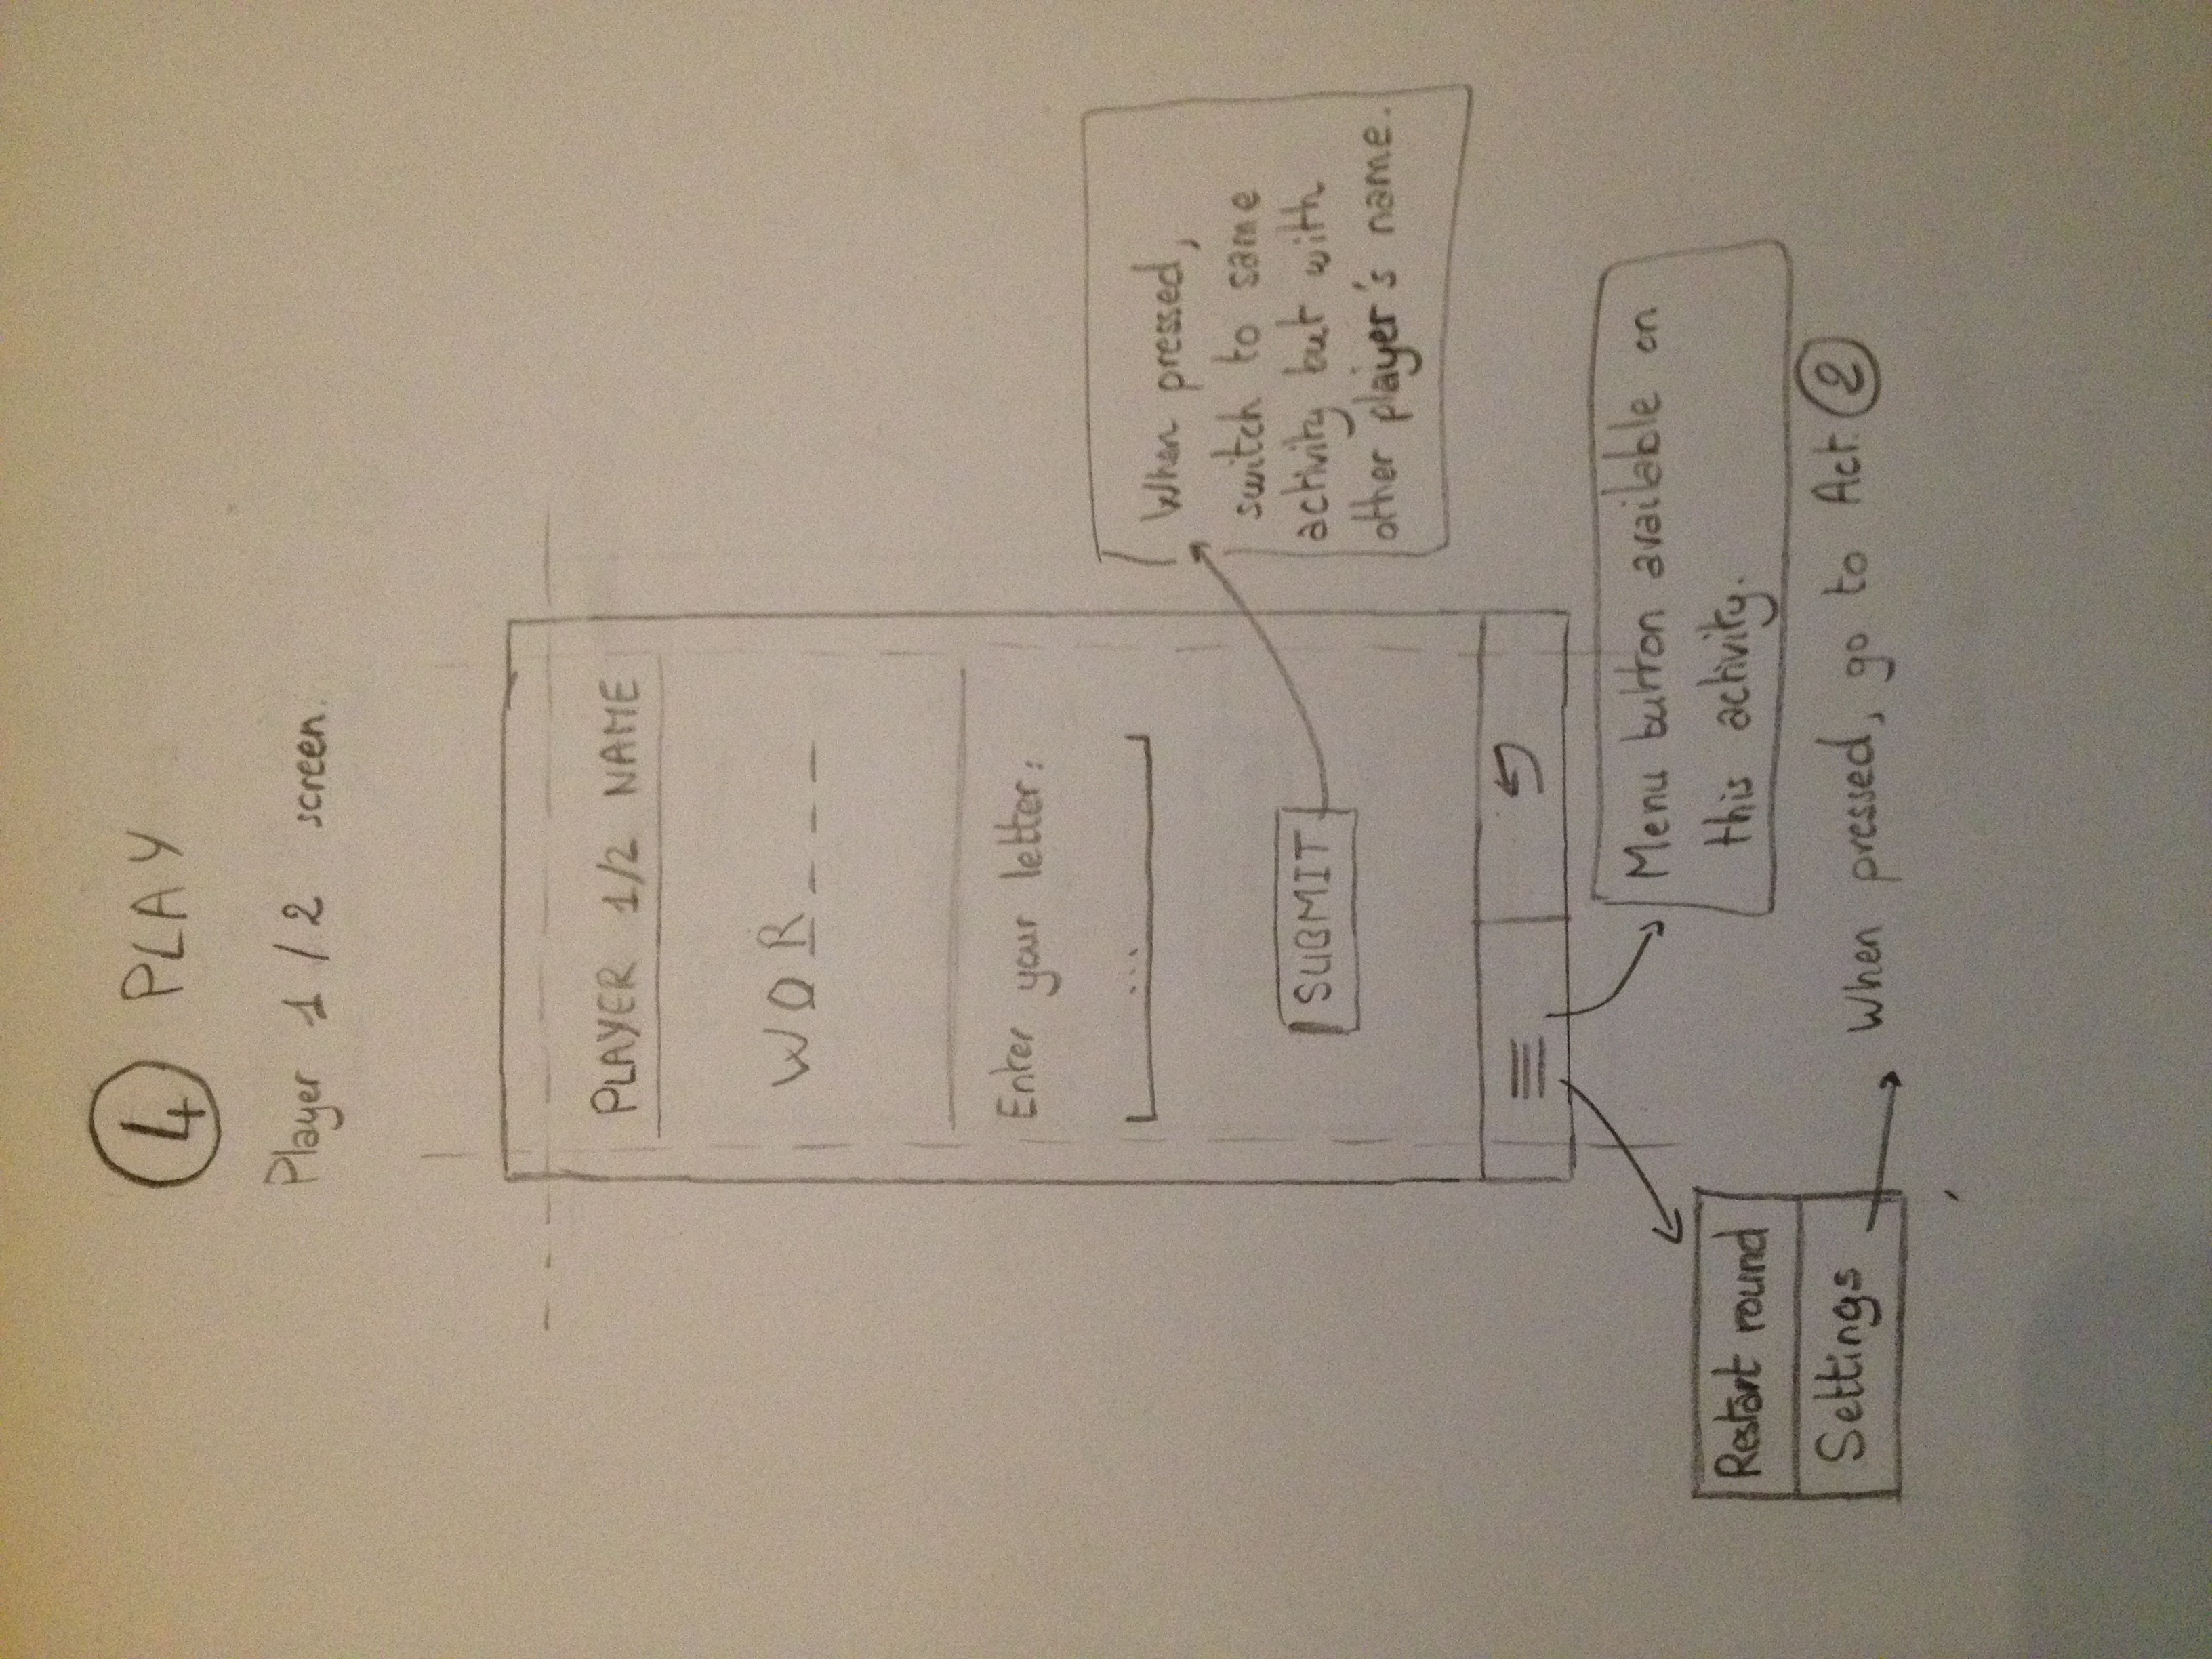 4 PLAY
Player 1/2 screen.
PLAYER 1/2 NAME
WOR___
Enter your letter:
...
SUBMIT
When pressed,
switch to same
activity but with
other player's name.
Menu button available on
this activity.
Restart round
Settings
When pressed, go to Act. 2